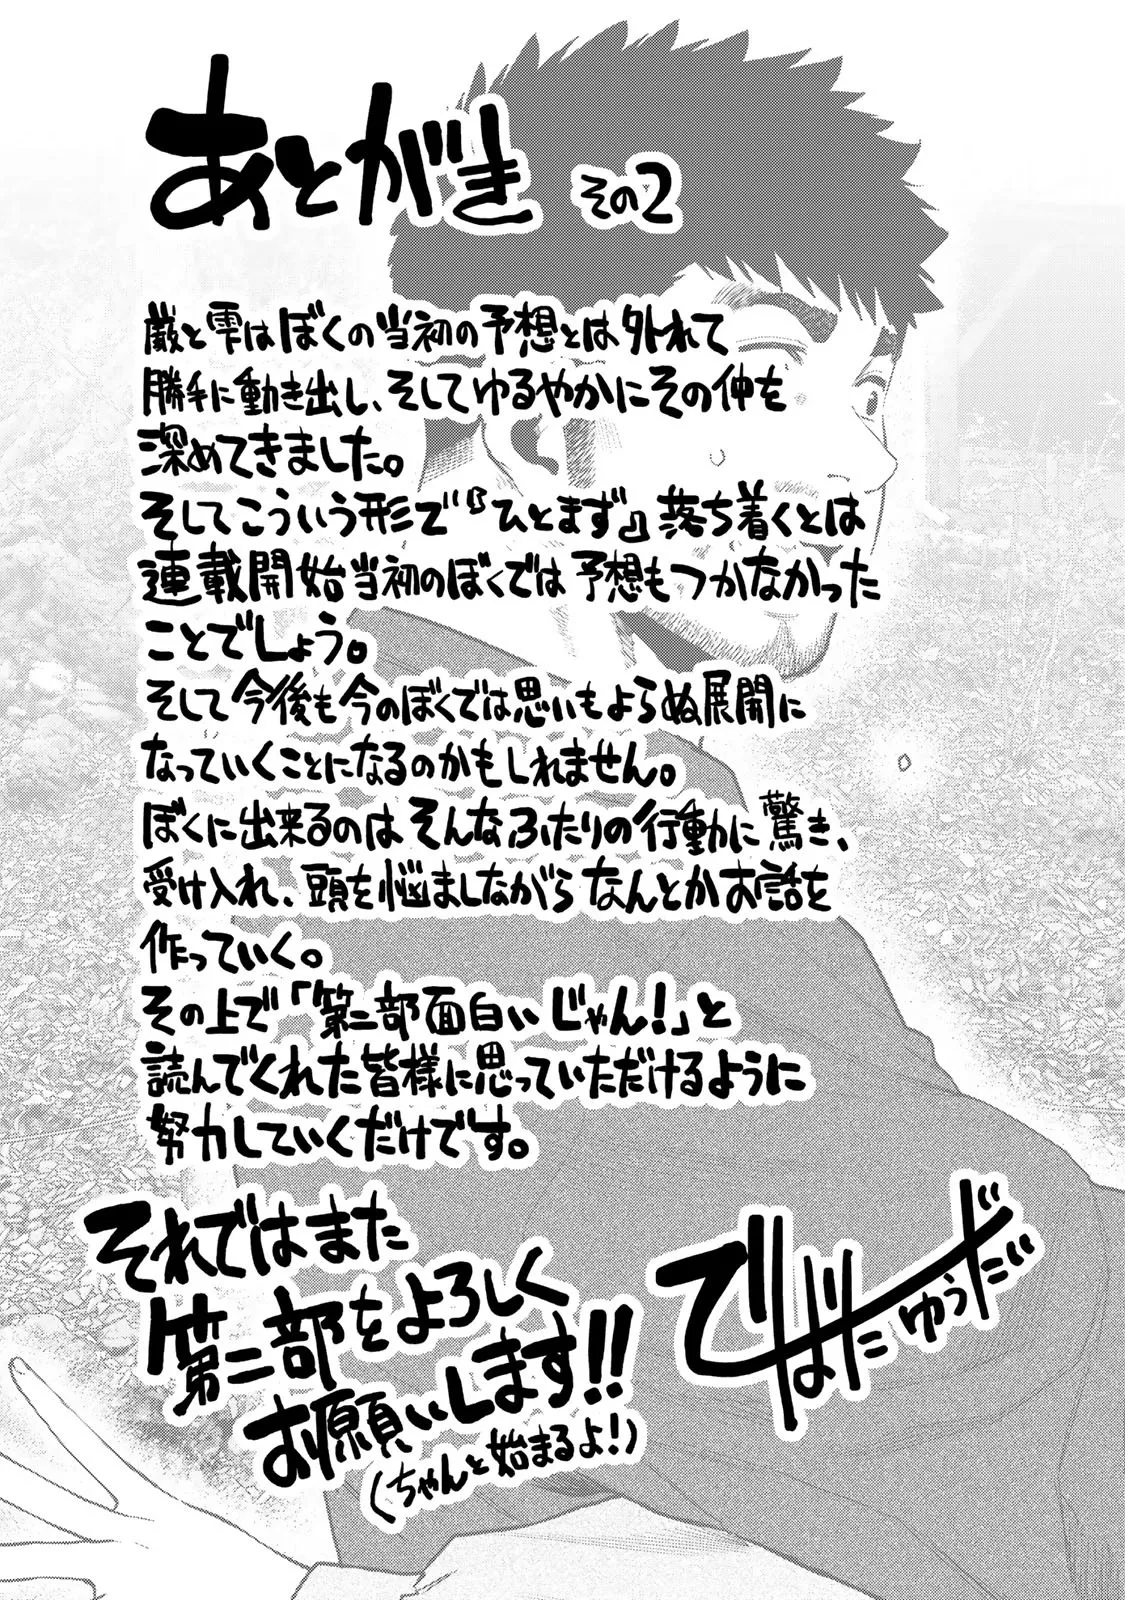 あとがき その2
巌と雫はぼくの当初の予想とは外れて
勝手に動き出し、そしてゆるやかにその仲を
深めてきました。
そしてこういう形で『ひとまず』落ち着くとは
連載開始当初のぼくでは予想もつかなかった
ことでしょう。
そして今後も今のぼくでは思いもよらぬ展開に
なっていくことになるのかもしれません。
ぼくに出来るのはそんなふたりの行動に驚き、
受け入れ、頭を悩ましながらなんとかお話を
作っていく。
その上で「第二部面白いじゃん!」と
読んでくれた皆様に思っていただけるように
努力していくだけです。
それではまた
第二部をよろしく
お願いします!!
(ちゃんと始まるよ!)